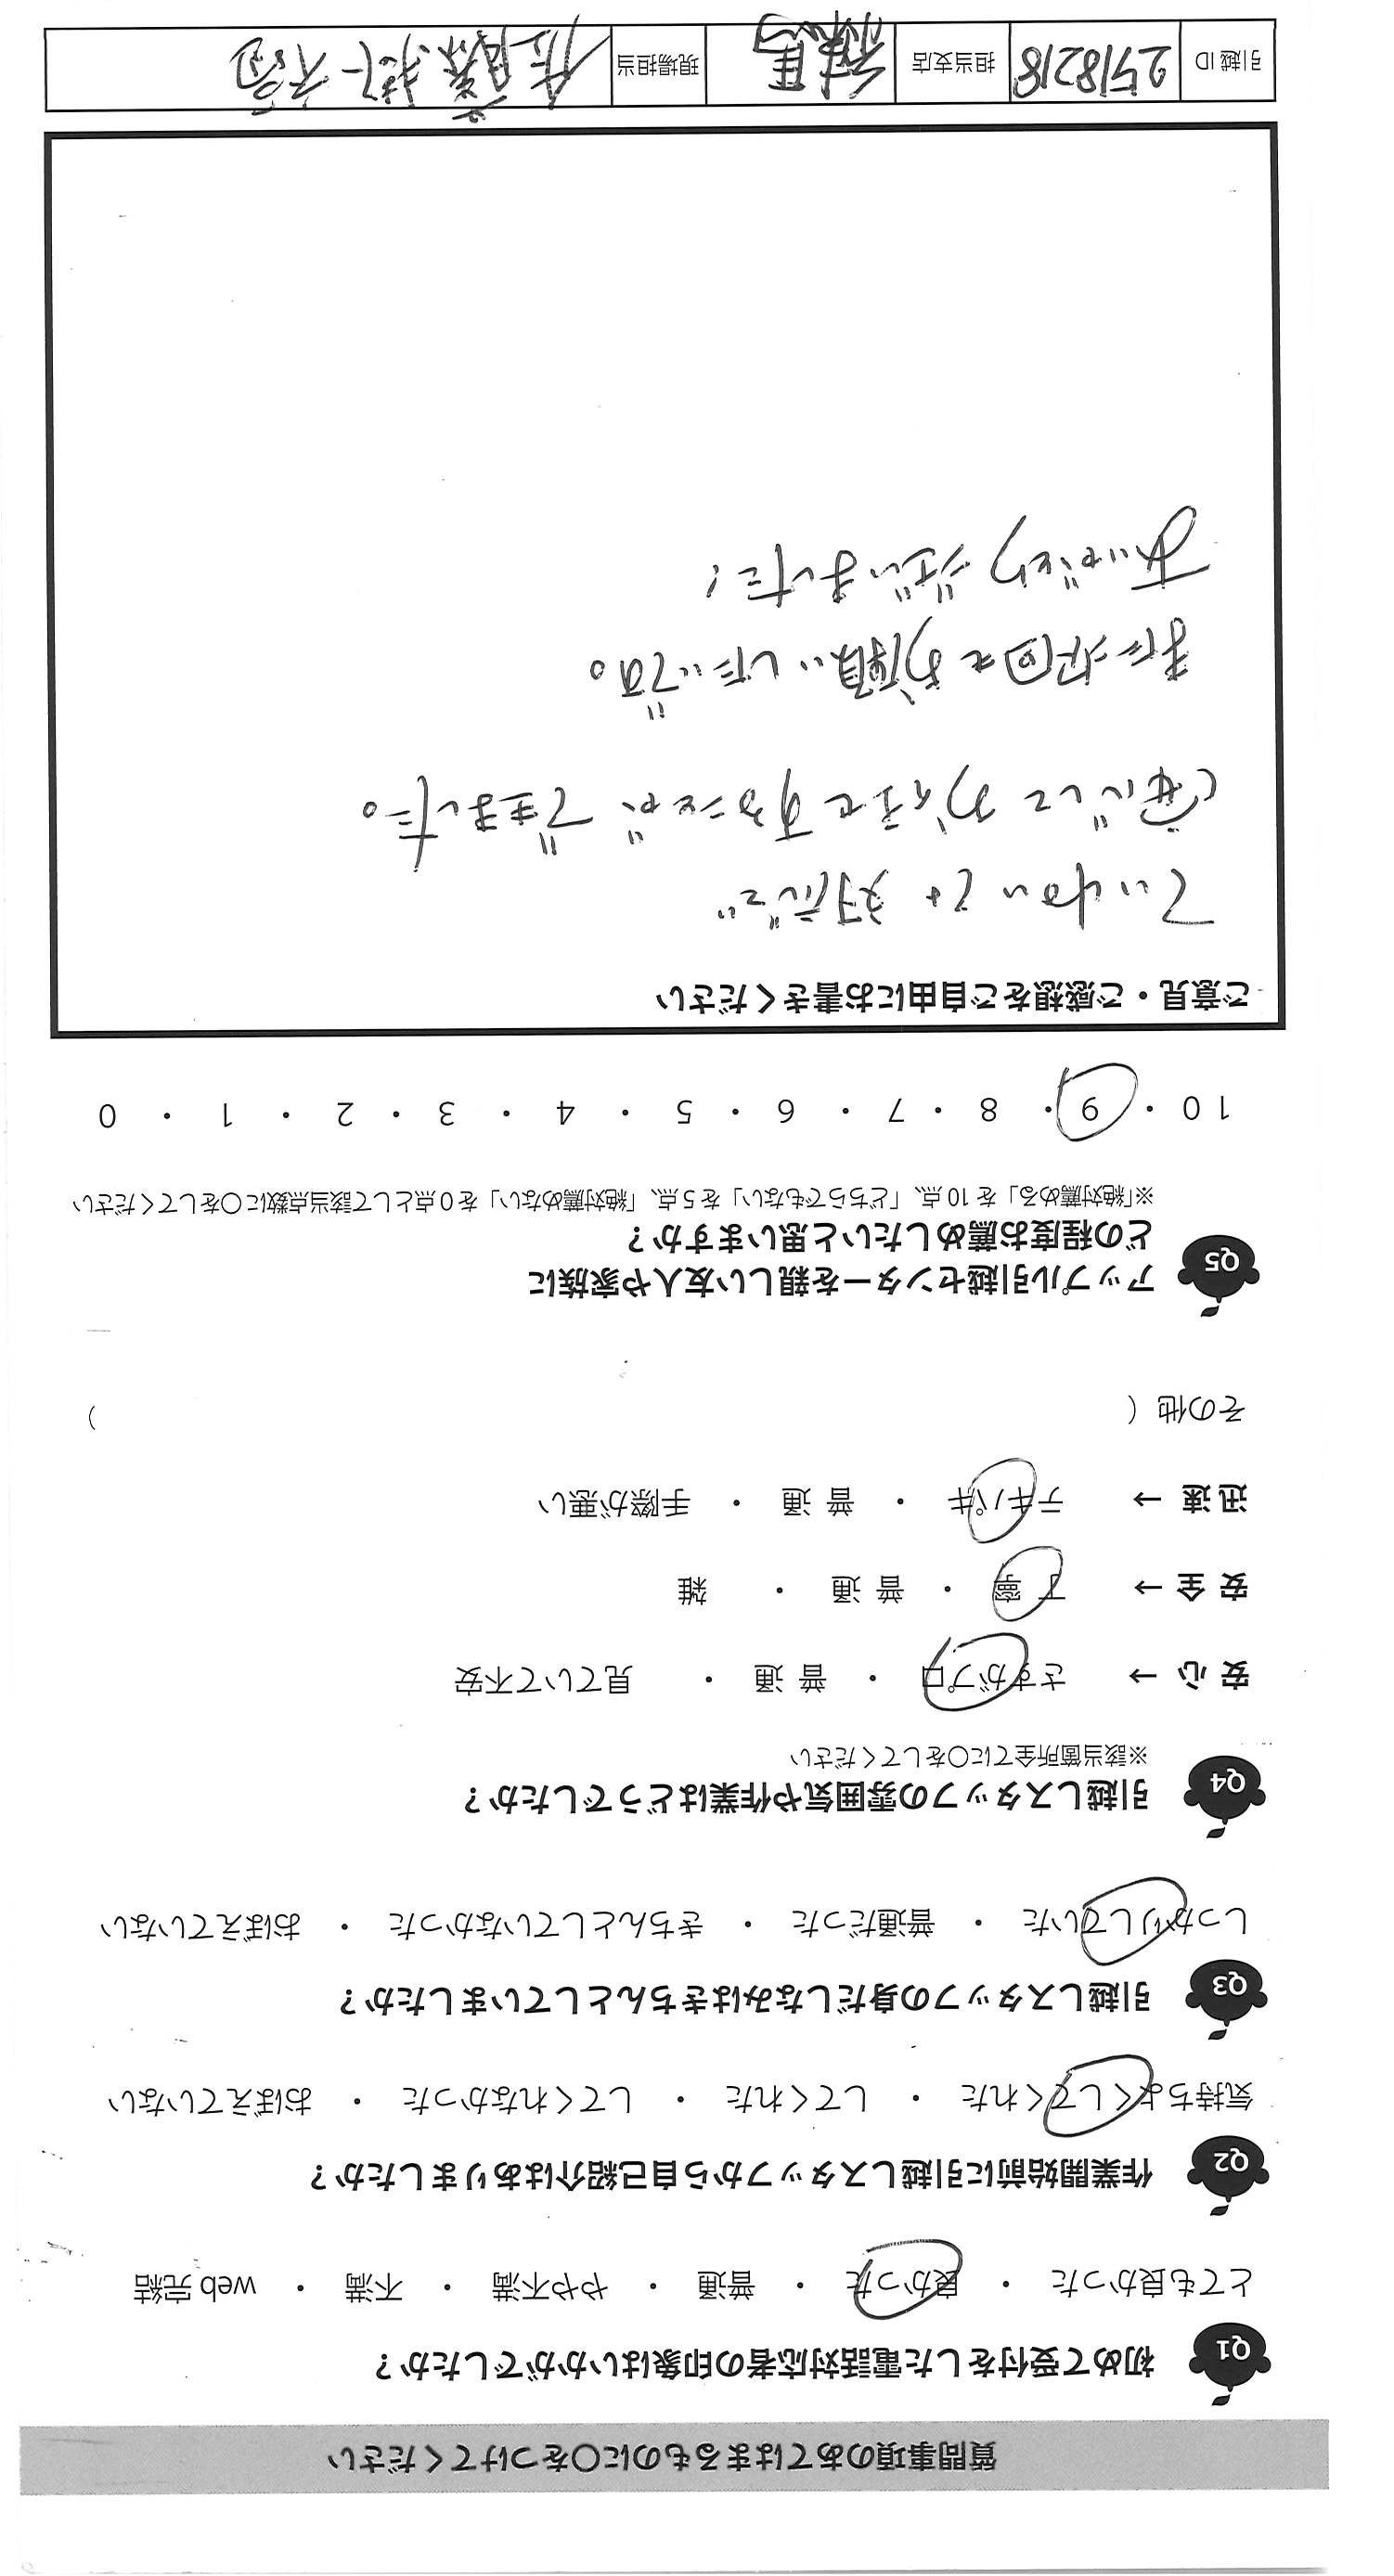 質問事項のあてはまるものに〇をつけてください
Q1 初めて受付をした電話対応者の印象はいかがでしたか？
とても良かった ・ 良かった ・ 普通 ・ やや不満 ・ 不満 ・ web 完結
Q2 作業開始前に引越しスタッフから自己紹介はありましたか？
気持ちよくしてくれた ・ してくれた ・ してくれなかった ・ おぼえていない
Q3 引越しスタッフの身だしなみはきちんとしていましたか？
しっかりしていた ・ 普通だった ・ きちんとしていなかった ・ おぼえていない
Q4 引越しスタッフの雰囲気や作業はどうでしたか？
※該当箇所全てに〇をしてください
安心 → さすがプロ ・ 普通 ・ 見ていて不安
安全 → 丁寧 ・ 普通 ・ 雑
迅速 → テキパキ ・ 普通 ・ 手際が悪い
その他（ ）
Q5 アップル引越センターを親しい友人や家族に
どの程度お薦めしたいと思いますか？
※「絶対薦める」を 10 点、「どちらでもない」を 5 点、「絶対薦めない」を 0 点として該当点数に〇をしてください
10 ・ 9 ・ 8 ・ 7 ・ 6 ・ 5 ・ 4 ・ 3 ・ 2 ・ 1 ・ 0
ご意見・ご感想をご自由にお書きください
ていねいな対応で
安心しておまかせすることができました。
また次回もお願いしたいです。
ありがとうございました！
引越 ID 2518218 担当支店 練馬 現場担当 佐藤